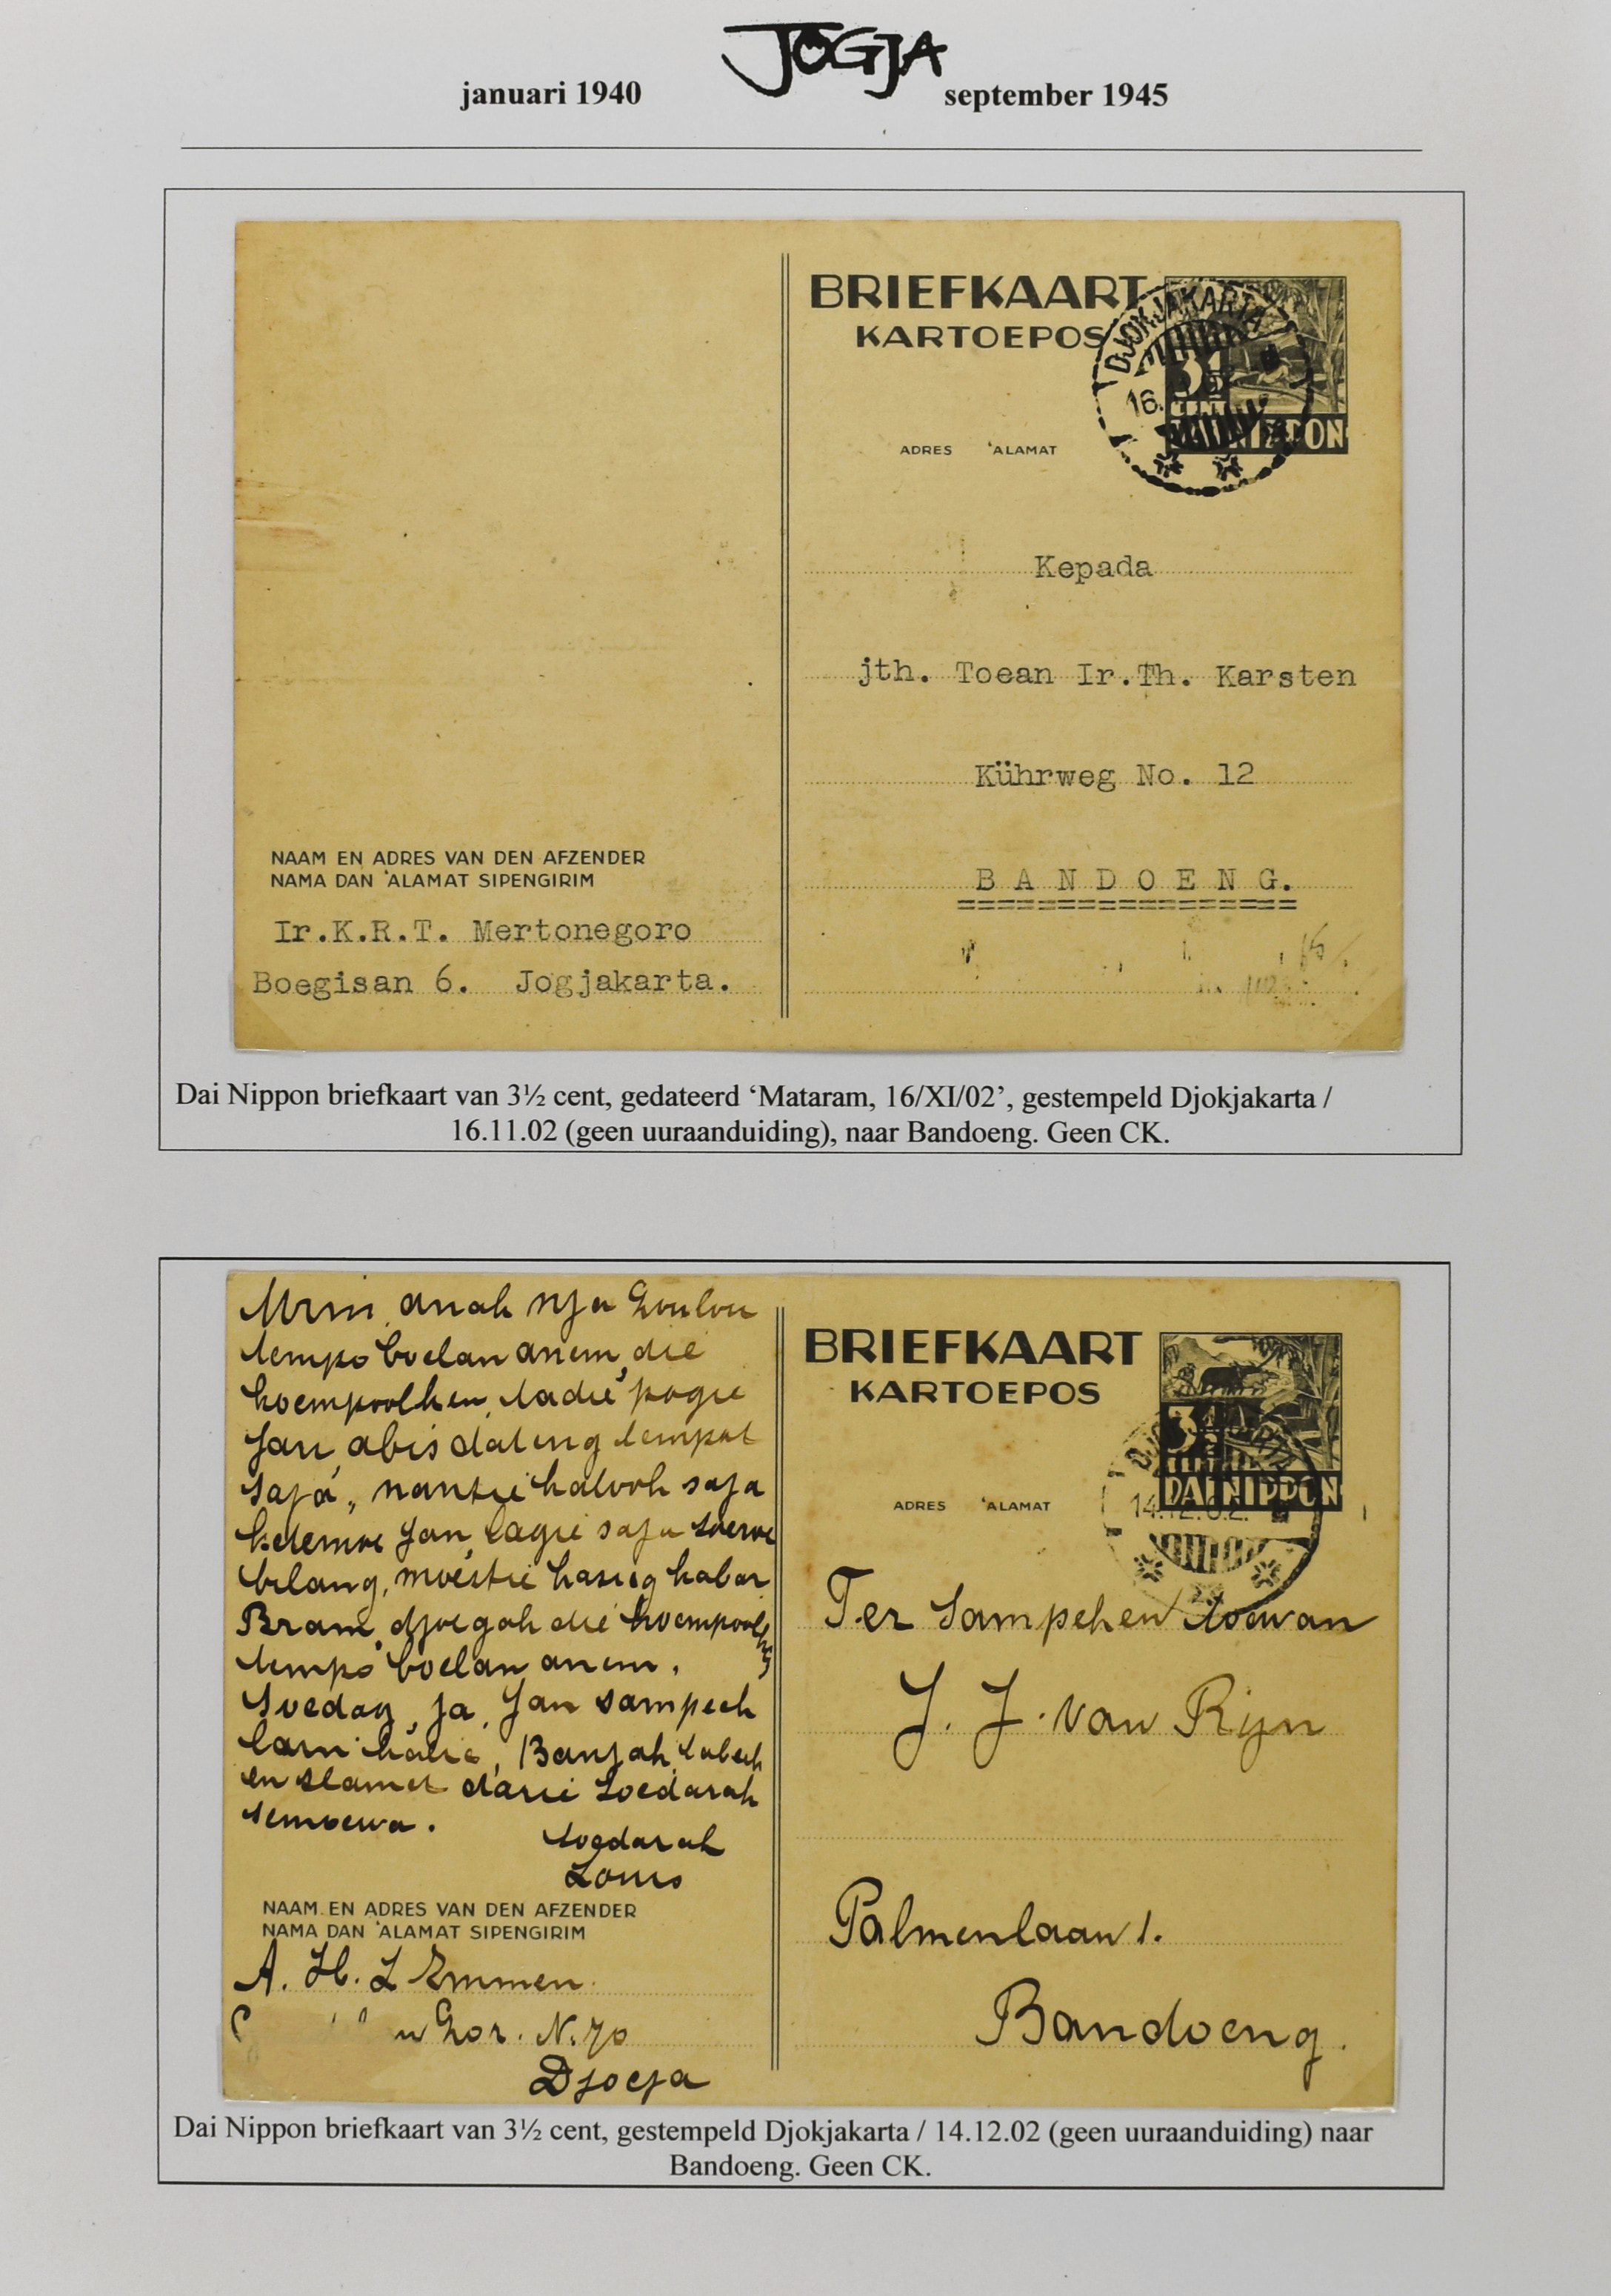 JOGJA
januari 1940 september 1945
BRIEFKAART
KARTOEPOS
DJOKJAKARTA
16.
3½
CENT
DAI NIPPON
ADRES 'ALAMAT
Kepada
jth. Toean Ir.Th. Karsten
Kührweg No. 12
B A N D O E N G.
NAAM EN ADRES VAN DEN AFZENDER
NAMA DAN 'ALAMAT SIPENGIRIM
Ir.K.R.T. Mertonegoro
Boegisan 6. Jogjakarta.
Dai Nippon briefkaart van 3½ cent, gedateerd ‘Mataram, 16/XI/02’, gestempeld Djokjakarta /
16.11.02 (geen uuraanduiding), naar Bandoeng. Geen CK.
Mrin, anak nja Loulou
tempo boelan anem, die
koempoolken, tadie pagie
Jan abis dateng tempat
saja, nantie kalooh saja
ketemoe Jan lagie saja soeroe
bilang, moestie kasieg kabar
Bram, djoegah die koempoolken
tempo boelan anem.
Soedag, ja, Jan sampeh
lain kalie, Banjak tabeh
en slamet darie Soedarah
semoewa.
Soedarah
Louis
NAAM EN ADRES VAN DEN AFZENDER
NAMA DAN 'ALAMAT SIPENGIRIM
A. H. L Emmen
Lor. N. 70
Djocja
BRIEFKAART
KARTOEPOS
3½
DAI NIPPON
14.12.02
ADRES 'ALAMAT
Ter Sampeken toewan
J. J. van Rijn
Palmenlaan 1.
Bandoeng.
Dai Nippon briefkaart van 3½ cent, gestempeld Djokjakarta / 14.12.02 (geen uuraanduiding) naar
Bandoeng. Geen CK.